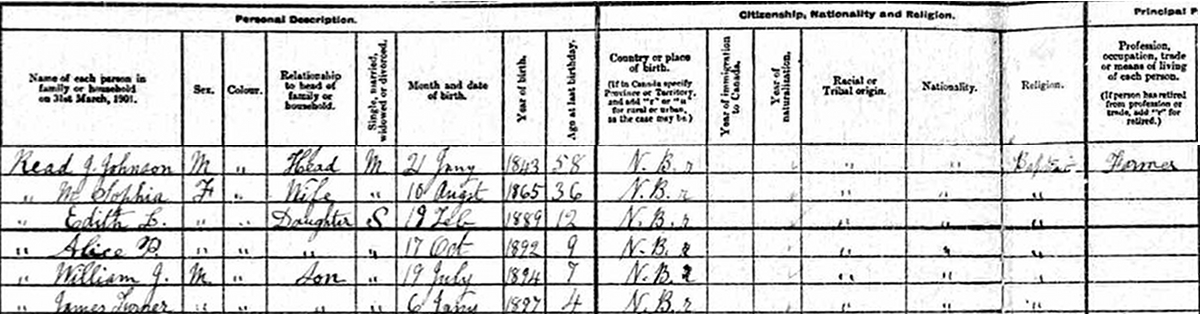 Personal Description. Citizenship, Nationality and Religion. Principal P
Name of each person in family or household on 31st March, 1901. Sex. Colour. Relationship to head of family or household. Single, married, widowed or divorced. Month and date of birth. Year of birth. Age at last birthday. Country or place of birth. (If in Canada specify Province or Territory, and add "r" or "u" for rural or urban, as the case may be.) Year of immigration to Canada. Year of naturalization. Racial or Tribal origin. Nationality. Religion. Profession, occupation, trade or means of living of each person. (If person has retired from profession or trade, add "r" for retired.)
Read J. Johnson M " Head M 21 Jany 1843 58 N. B. r " " Baptist Farmer
" M Sophia F " Wife " 10 Augst 1865 36 N. B. r " " "
" Edith L. " " Daughter S 19 Feb 1889 12 N. B. r " " "
" Alice P. " " " " 17 Oct 1892 9 N. B. r " " "
" William J. M. " Son " 19 July 1894 7 N. B. r " " "
" James Turner " " " " 6 Jany 1897 4 N. B. r " " "